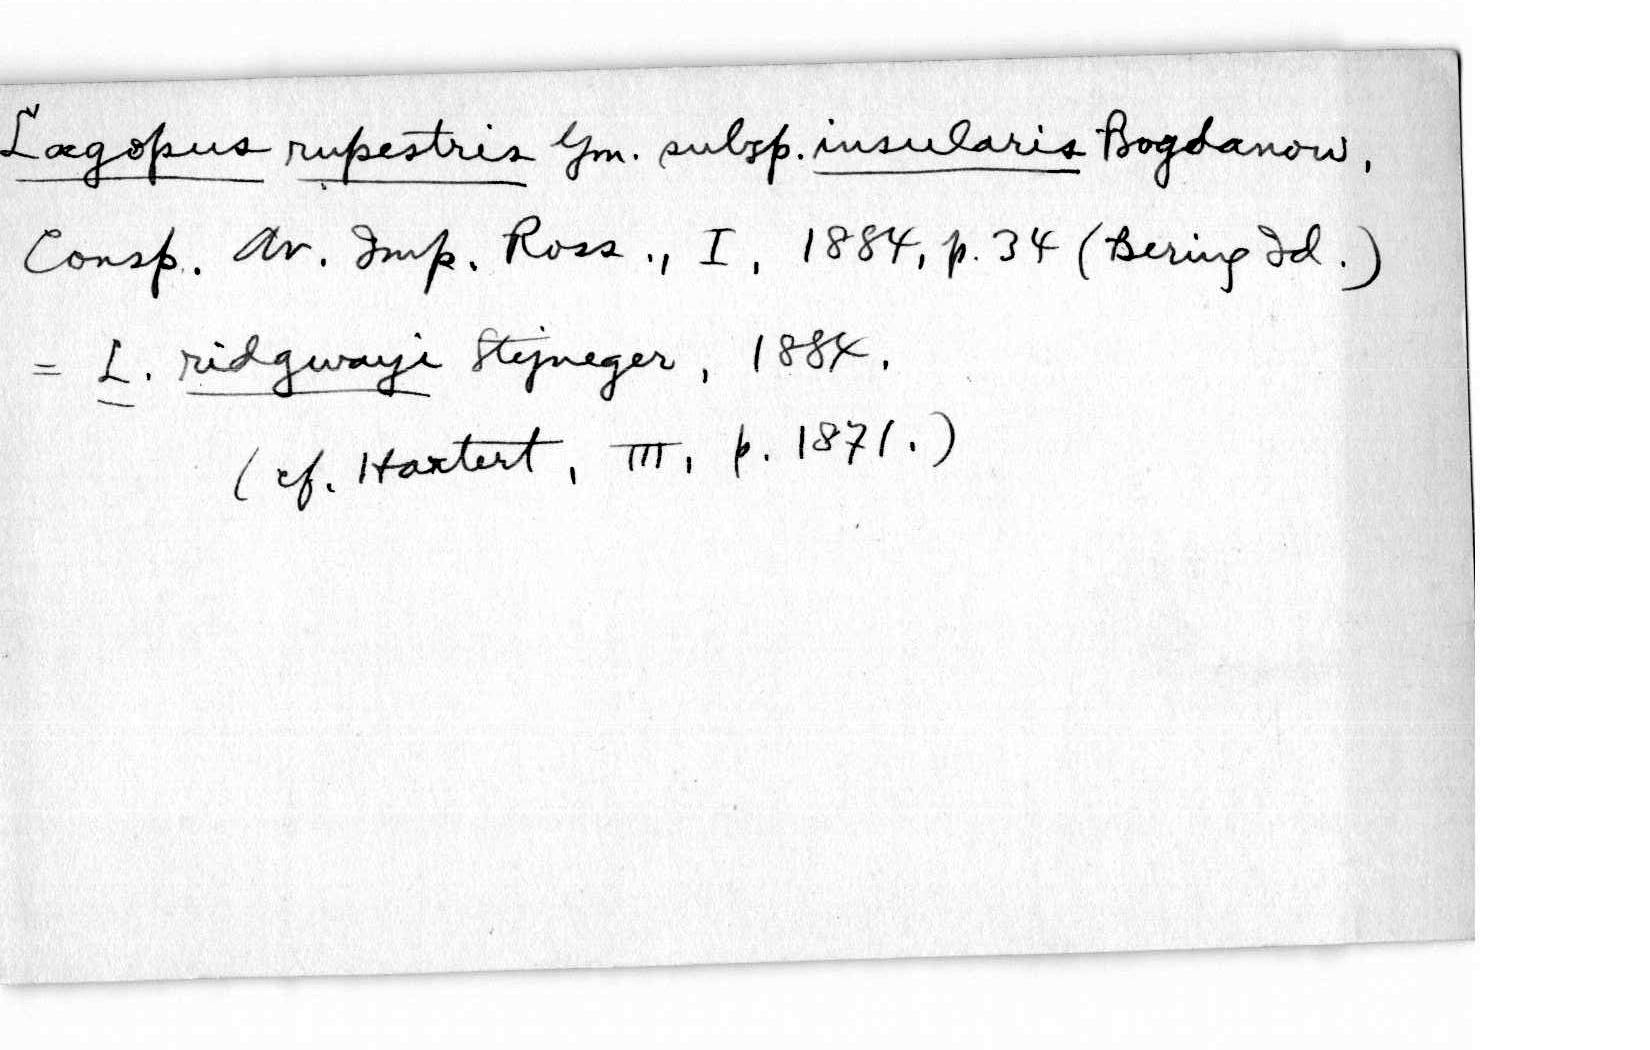 Lagopus rupestris Gm. subsp. insularis Bogdanow,
Consp. Av. Imp. Ross., I, 1884, p. 34 (Bering Id.)
= L. ridgwayi Stejneger, 1884.
(cf. Hartert, III, p. 1871.)